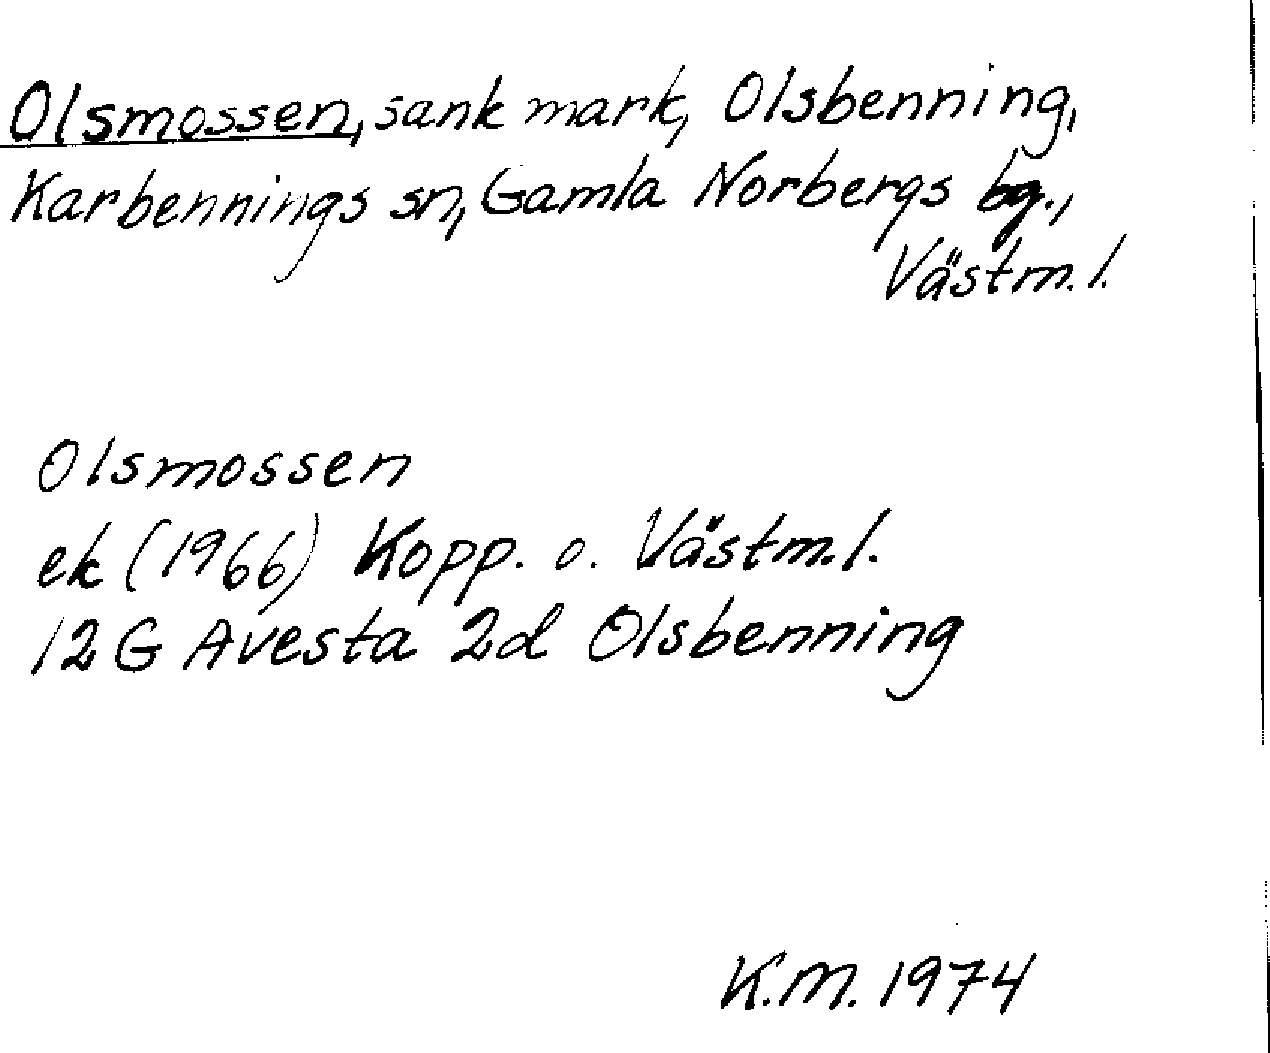 Olsmossen, sank mark, Olsbenning,
Karbennings sn, Gamla Norbergs bg.,
Västm. l.
Olsmossen
ek (1966) Kopp. o. Västm. l.
12G Avesta 2d Olsbenning
K.M. 1974